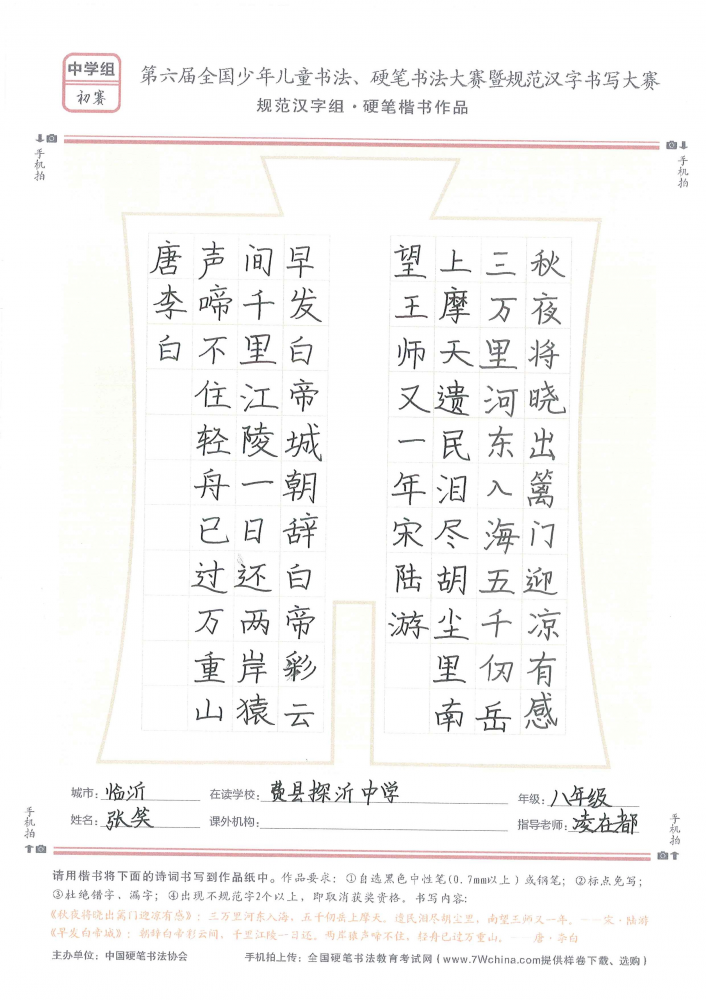 中学组
初赛
第六届全国少年儿童书法、硬笔书法大赛暨规范汉字书写大赛
规范汉字组·硬笔楷书作品
手机拍
手机拍
秋夜将晓出篱门迎凉有感
三万里河东入海五千仞岳
上摩天遗民泪尽胡尘里南
望王师又一年宋陆游
早发白帝城朝辞白帝彩云
间千里江陵一日还两岸猿
声啼不住轻舟已过万重山
唐李白
城市：临沂 在读学校：费县探沂中学 年级：八年级
姓名：张笑 课外机构： 指导老师：凌在都
手机拍
手机拍
请用楷书将下面的诗词书写到作品纸中。作品要求：①自选黑色中性笔(0.7mm以上)或钢笔；②标点免写；
③杜绝错字、漏字；④出现不规范字2个以上，即取消获奖资格。书写内容：
《秋夜将晓出篱门迎凉有感》：三万里河东入海，五千仞岳上摩天。遗民泪尽胡尘里，南望王师又一年。——宋·陆游
《早发白帝城》：朝辞白帝彩云间，千里江陵一日还。两岸猿声啼不住，轻舟已过万重山。——唐·李白
主办单位：中国硬笔书法协会 手机拍上传：全国硬笔书法教育考试网（www.7Wchina.com提供样卷下载、选购）